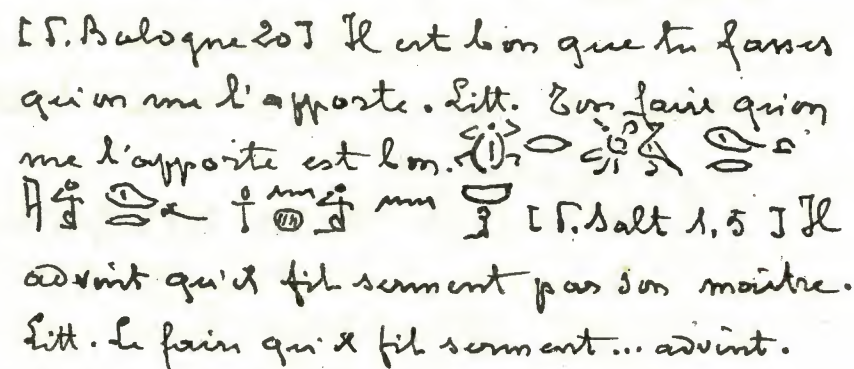 [P. Bologne 20] Il est bon que tu fasses
qu'on me l'apporte. Litt. Ton faire qu'on
me l'apporte est bon.
[P. Salt 1, 5] Il
advint qu'il fit serment par son maître.
Litt. Le faire qu'il fit serment... advint.